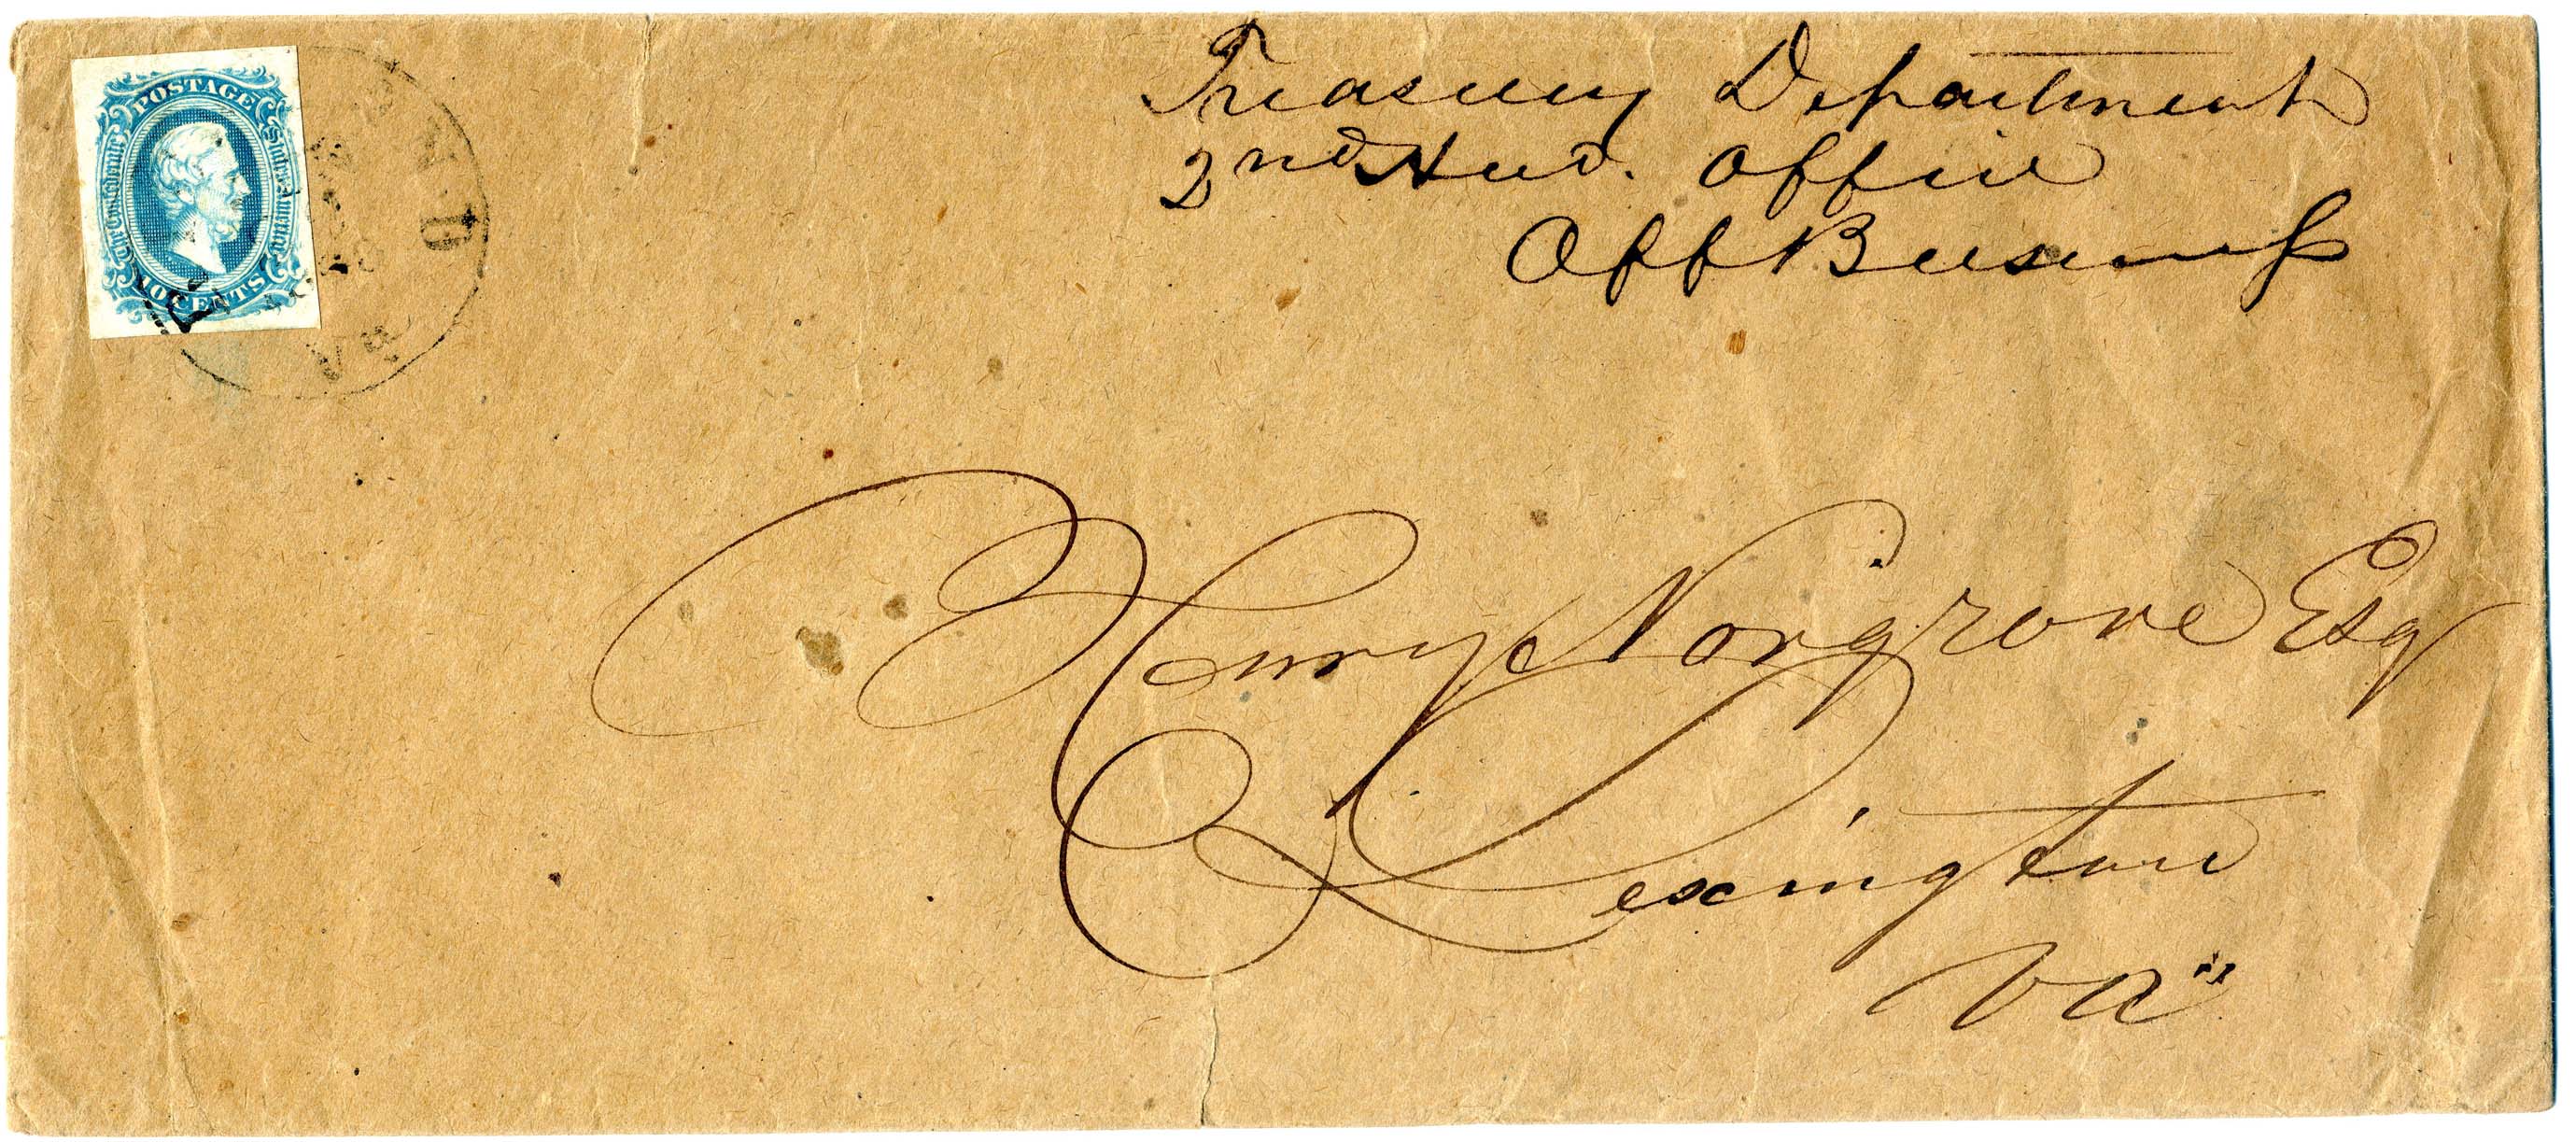 POSTAGE
The Confederate States of America
10 CENTS
ND
VA
Treasury Department
2nd Aud. Office
Off Business
Henry Norgrove Esq
Lexington
Va